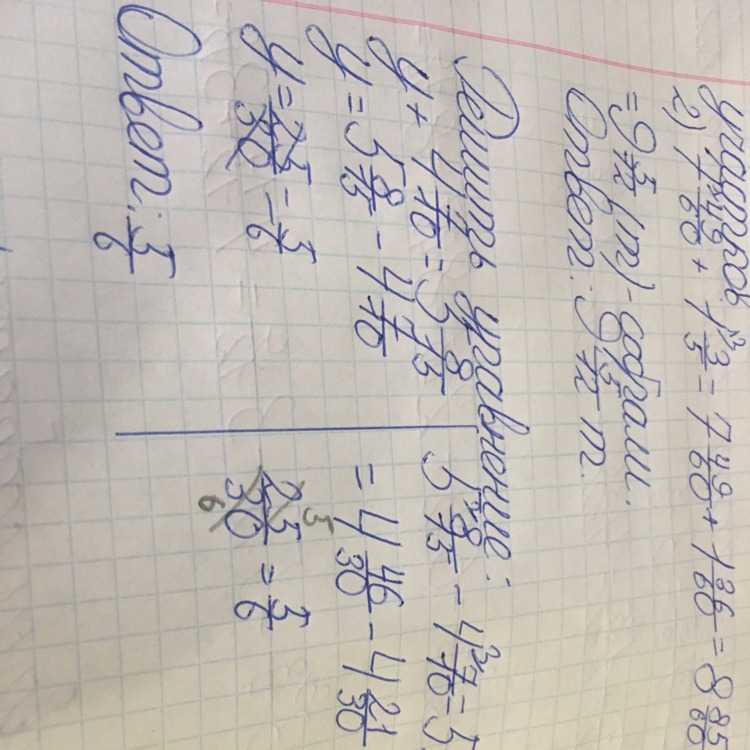 участков.
2) 7 49/60 + 1 3/5 = 7 49/60 + 1 36/60 = 8 85/60
= 9 5/12 (т) - собрали.
Ответ: 9 5/12 т.
Решить уравнение:
y + 4 7/10 = 5 8/15
y = 5 8/15 - 4 7/10
y = 25/30 = 5/6
Ответ: 5/6
5 8/15 - 4 7/10 = 5
= 4 46/30 - 4 21/30
25/30 = 5/6